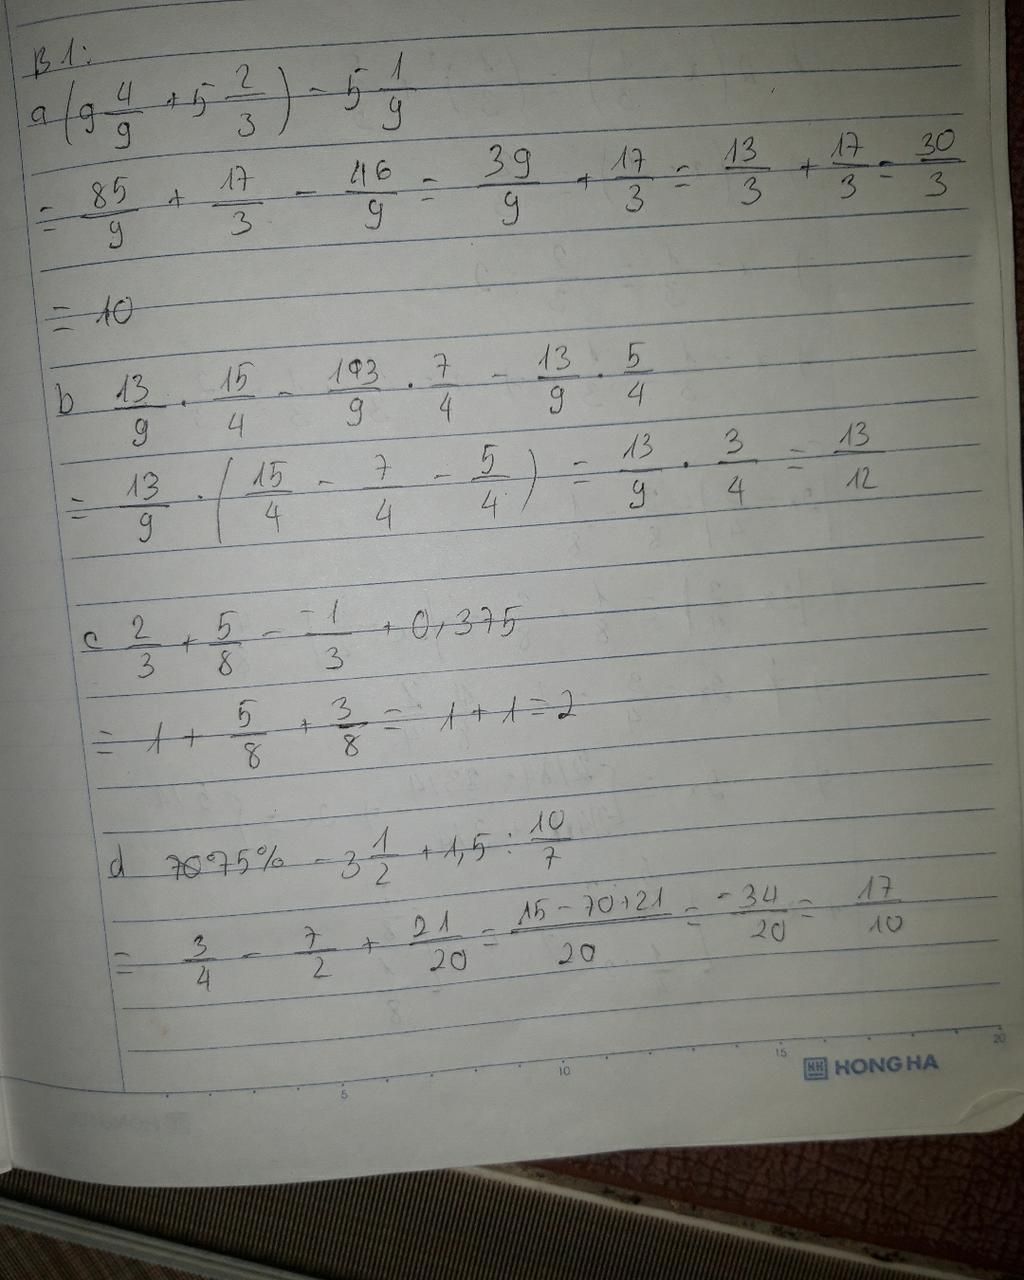 B1:
a (9 4/9 + 5 2/3) - 5 1/9
= 85/9 + 17/3 - 46/9 = 39/9 + 17/3 = 13/3 + 17/3 = 30/3
= 10
b 13/9 . 15/4 - 193/9 . 7/4 - 13/9 . 5/4
= 13/9 . (15/4 - 7/4 - 5/4) = 13/9 . 3/4 = 13/12
c 2/3 + 5/8 - -1/3 + 0,375
= 1 + 5/8 + 3/8 = 1 + 1 = 2
d 75% - 3 1/2 + 1,5 : 10/7
= 3/4 - 7/2 + 21/20 = 15 - 70 + 21/20 = -34/20 = 17/10
5 10 15 20
HONG HA